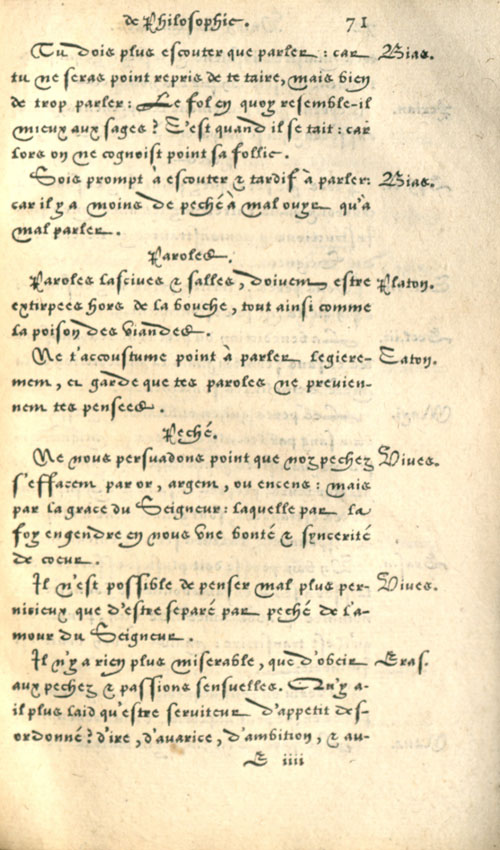 de Philosophie. 71
Tu dois plus escouter que parler : car Bias.
tu ne seras point repris de te taire, mais bien
de trop parler : Le fol en quoy resemble-il
mieux aux sages ? C'est quand il se tait : car
lors on ne cognoist point sa follie.
Sois prompt a escouter & tardif à parler: Bias.
car il y a moins de peché à mal ouyr qu'a
mal parler.
Paroles.
Paroles lascives & salles, doivent estre Platon.
extirpees hors de la bouche, tout ainsi comme
la poison des viandes.
Ne t'accoustume point à parler legiere- Caton.
ment, et garde que tes paroles ne previen-
nent tes pensees.
Peché.
Ne nous persuadons point que noz pechez Vives.
s'effacent par or, argent, ou encens : mais
par la grace du Seigneur : laquelle par la
foy engendre en nous une bonté & syncerité
de coeur.
Il n'est possible de penser mal plus per- Vives.
nicieux que d'estre separé par peché de l'a-
mour du Seigneur.
Il n'y a rien plus miserable, que d'obeir Eras.
aux pechez & passions sensuelles. Qu'y a-
il plus laid qu'estre serviteur d'appetit des-
ordonné ? d'ire, d'avarice, d'ambition, & au-
E iiii